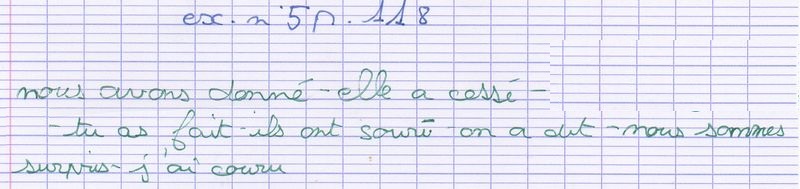 ex. n°5 p. 118
nous avons donné - elle a cessé -
- tu as fait - ils ont souri - on a dit - nous sommes
surpris - j'ai couru